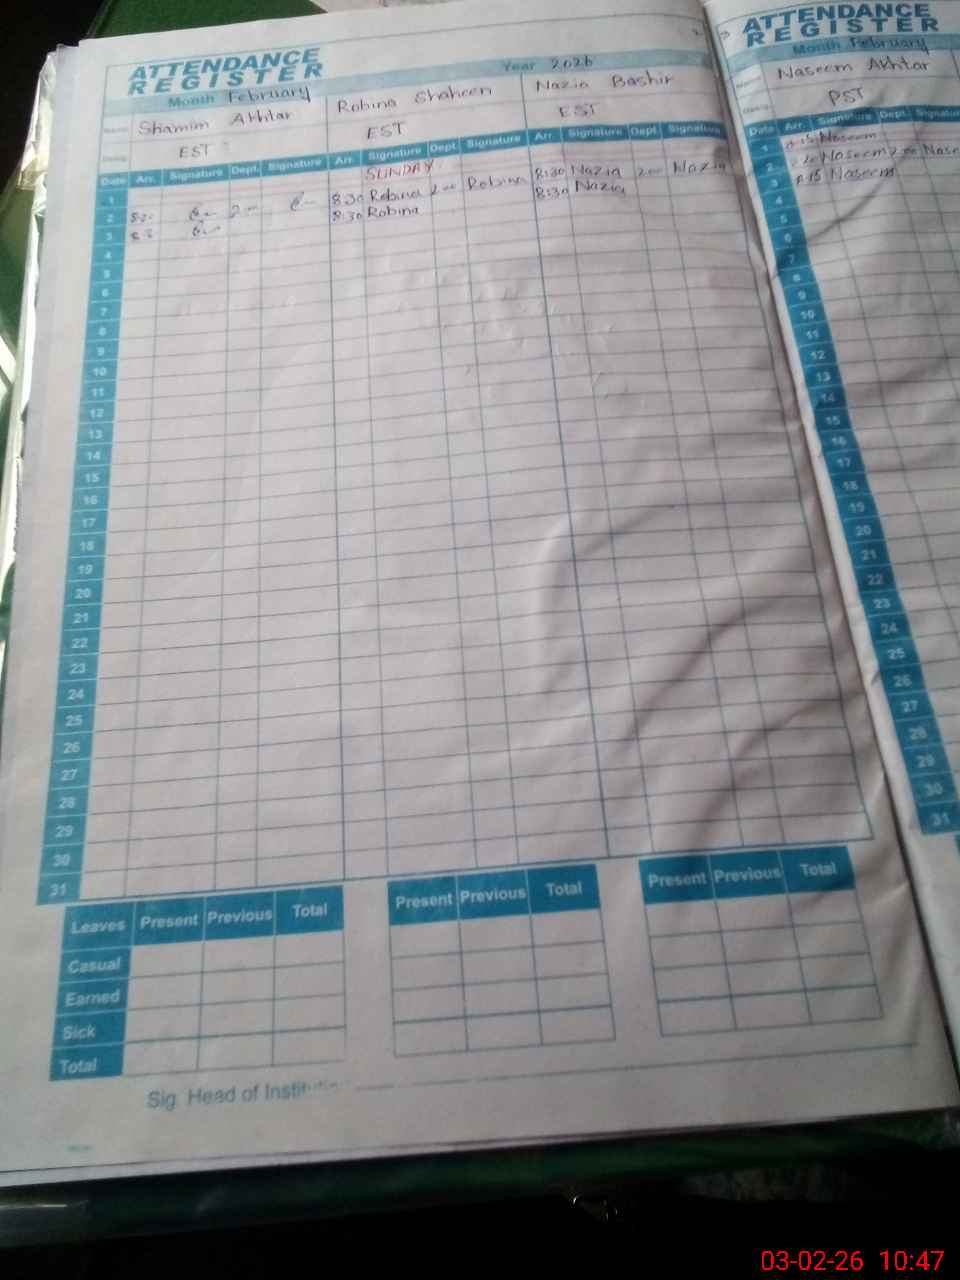 ATTENDANCE
REGISTER
Year 2026
Month February
Name Shamim Akhtar Robina Shaheen Nazia Bashir
Desig. EST EST EST
Date Arr. Signature Dept. Signature Arr. Signature Dept. Signature Arr. Signature Dept. Signature
1 SUNDAY
2 8:30 Robina 2:00 Robina 8:30 Nazia 2:00 Nazia
3 8:30 Robina 8:30 Nazia
4
5
6
7
8
9
10
11
12
13
14
15
16
17
18
19
20
21
22
23
24
25
26
27
28
29
30
31
Leaves Present Previous Total Present Previous Total Present Previous Total
Casual
Earned
Sick
Total
Sig. Head of Institution
3
ATTENDANCE
REGISTER
Month February
Naseem Akhtar
PST
Date Arr. Signature Dept. Signature
1 Naseem
2 Naseem 2:00
3 8:15 Naseem
4
5
6
7
8
9
10
11
12
13
14
15
16
17
18
19
20
21
22
23
24
25
26
27
28
29
30
31
03-02-26 10:47